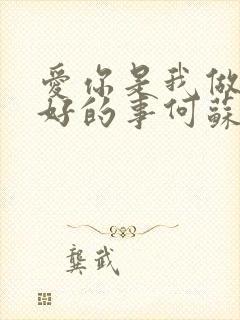 愛你是我做
好的事何蘇
龔武